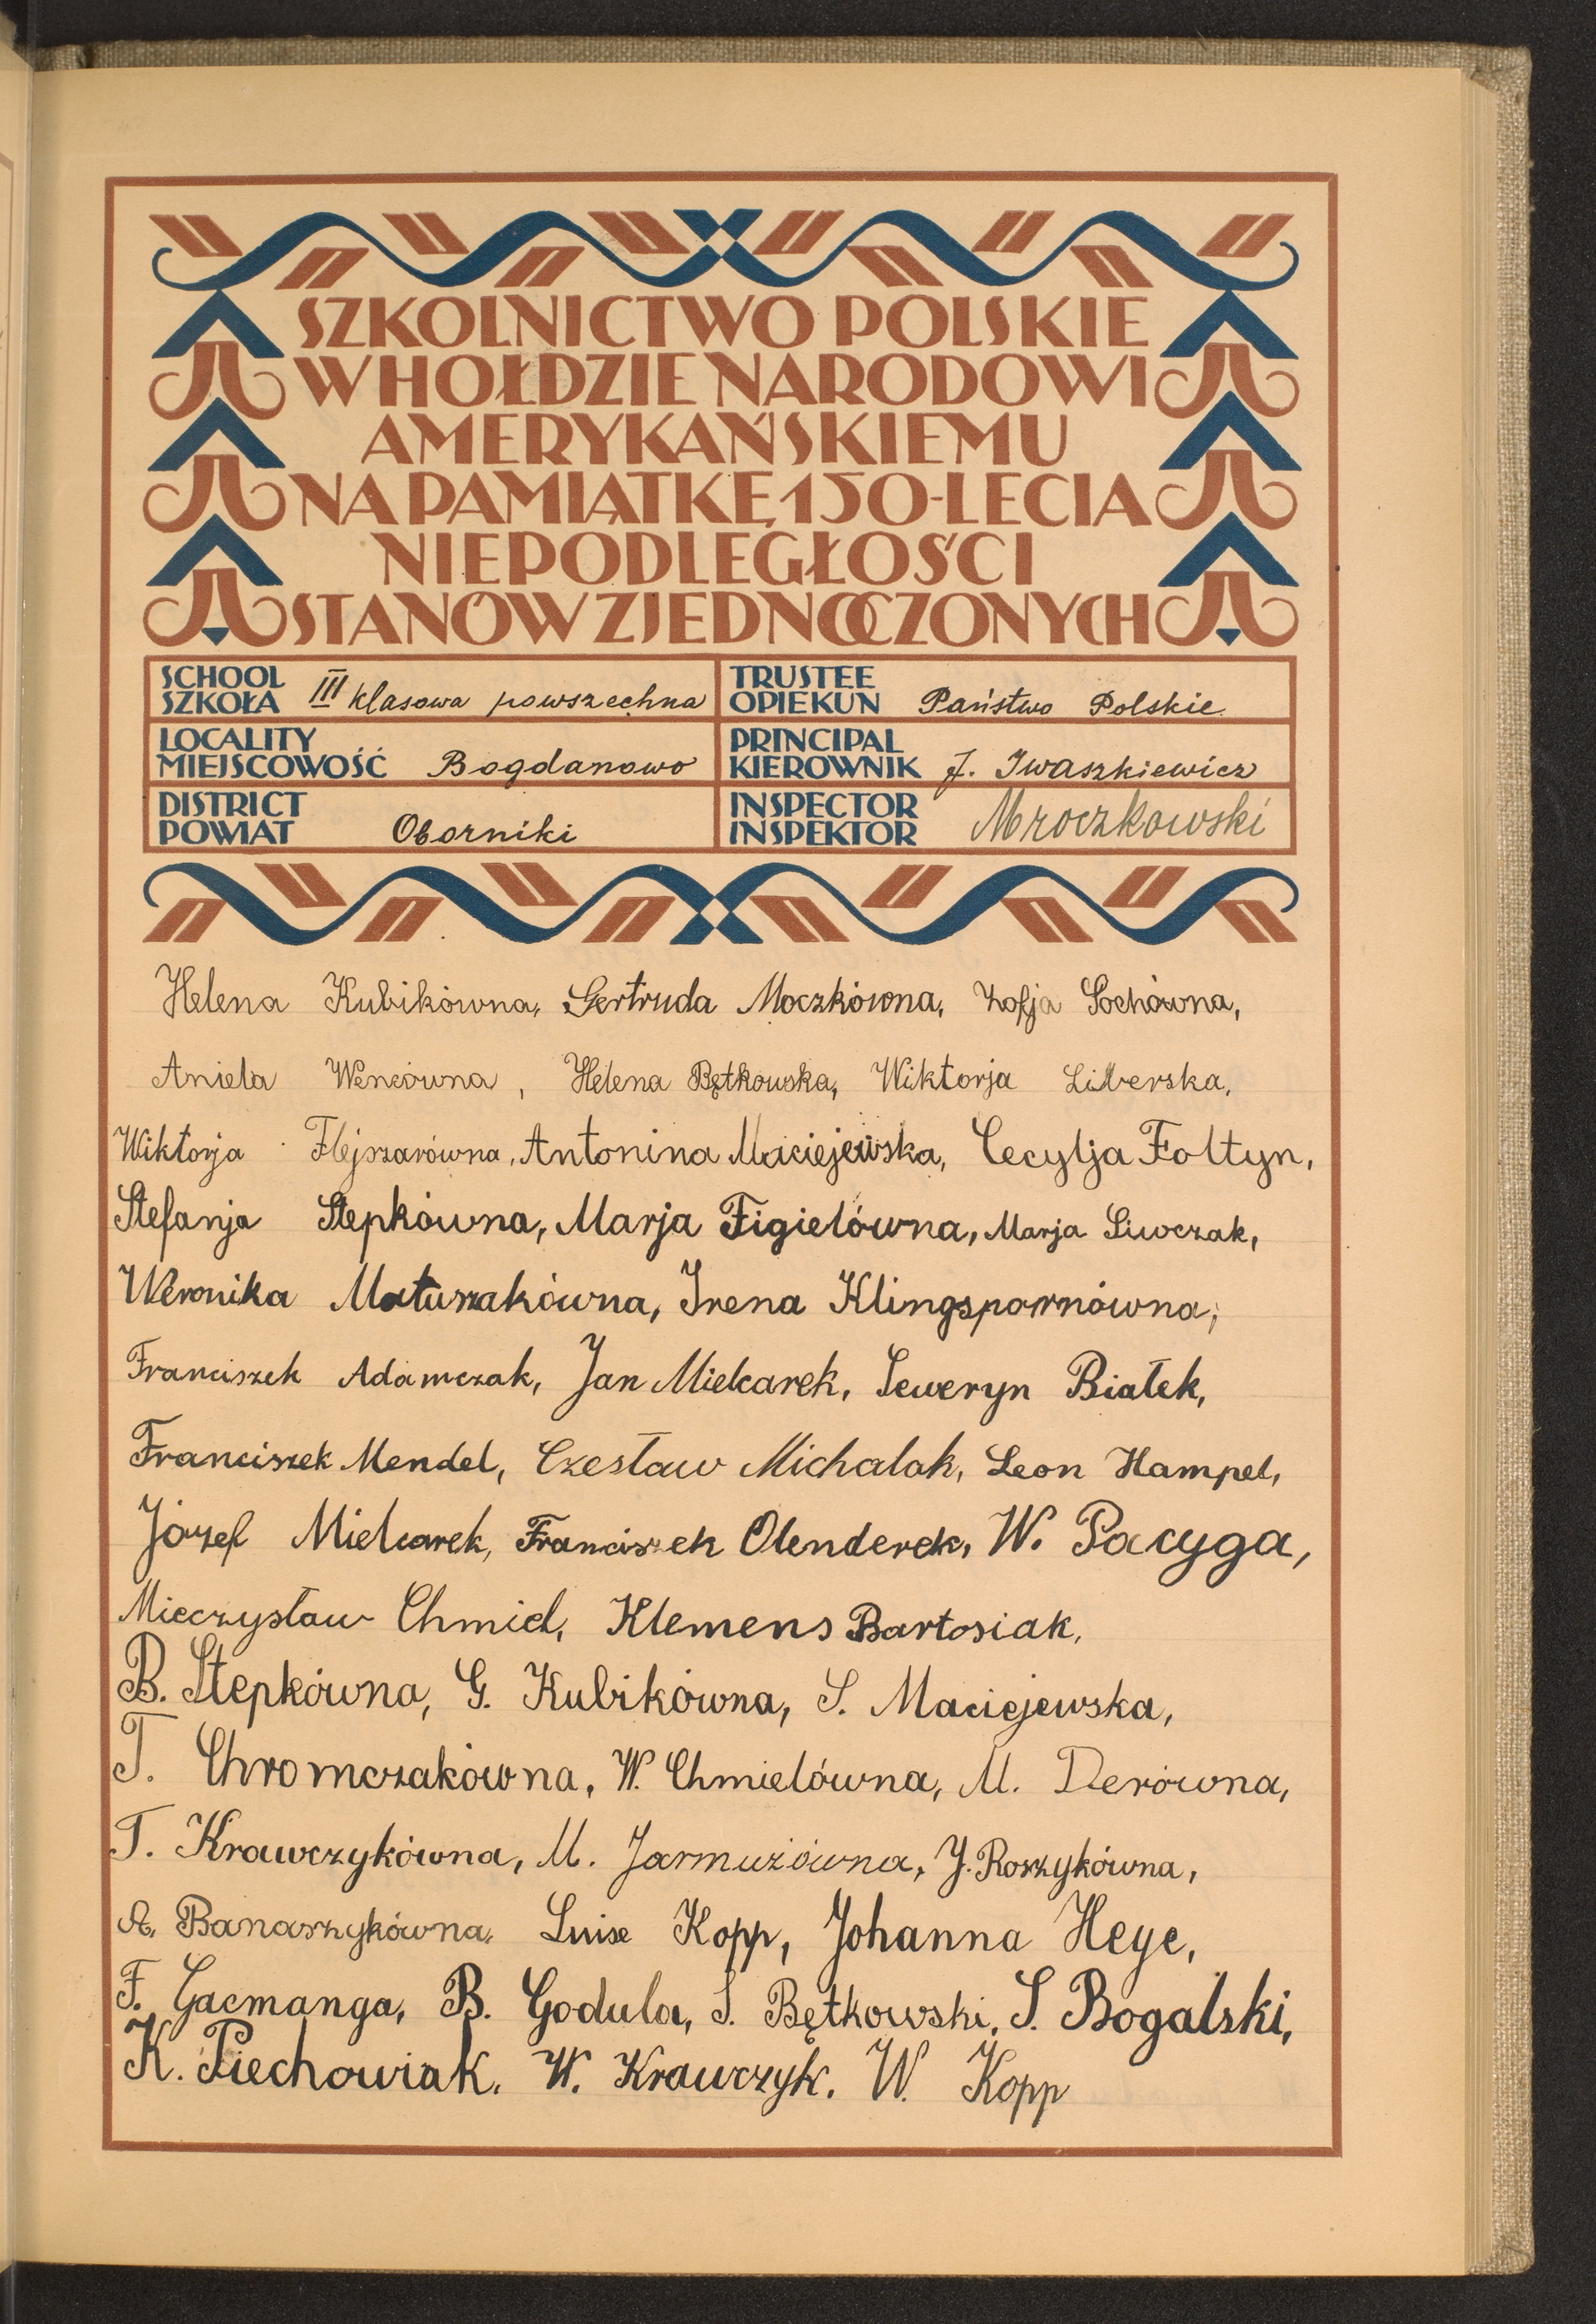 SZKOLNICTWO POLSKIE
W HOŁDZIE NARODOWI
AMERYKAŃSKIEMU
NA PAMIĄTKĘ 150-LECIA
NIEPODLEGŁOŚCI
STANÓW ZJEDNOCZONYCH
SCHOOL
SZKOŁA III klasowa powszechna
TRUSTEE
OPIEKUN Państwo Polskie
LOCALITY
MIEJSCOWOŚĆ Bogdanowo
PRINCIPAL
KIEROWNIK J. Iwaszkiewicz
DISTRICT
POWIAT Oborniki
INSPECTOR
INSPEKTOR Mroczkowski
Helena Kubikówna, Gertruda Moczkówna, Zofja Sochówna,
Aniela Wencówna, Helena Bętkowska, Wiktorja Liberska,
Wiktorja Flejszarówna, Antonina Maciejewska, Cecylja Foltyn,
Stefanja Stepkówna, Marja Figielówna, Marja Siwczak,
Weronika Matuszakówna, Irena Klingspornówna,
Franciszek Adamczak, Jan Mielcarek, Seweryn Białek,
Franciszek Mendel, Czesław Michalak, Leon Hampel,
Józef Mielcarek, Franciszek Olenderek, W. Pacyga,
Mieczysław Chmiel, Klemens Bartosiak,
B. Stepkówna, G. Kubikówna, S. Maciejewska,
T. Chromczakówna, W. Chmielówna, M. Derówna,
T. Krawczykówna, M. Jarmużówna, J. Roszykówna,
A. Banaszykówna, Luise Kopp, Johanna Heye,
F. Gacmanga, B. Godula, S. Bętkowski, S. Bogalski,
K. Piechowiak, W. Krawczyk. W. Kopp